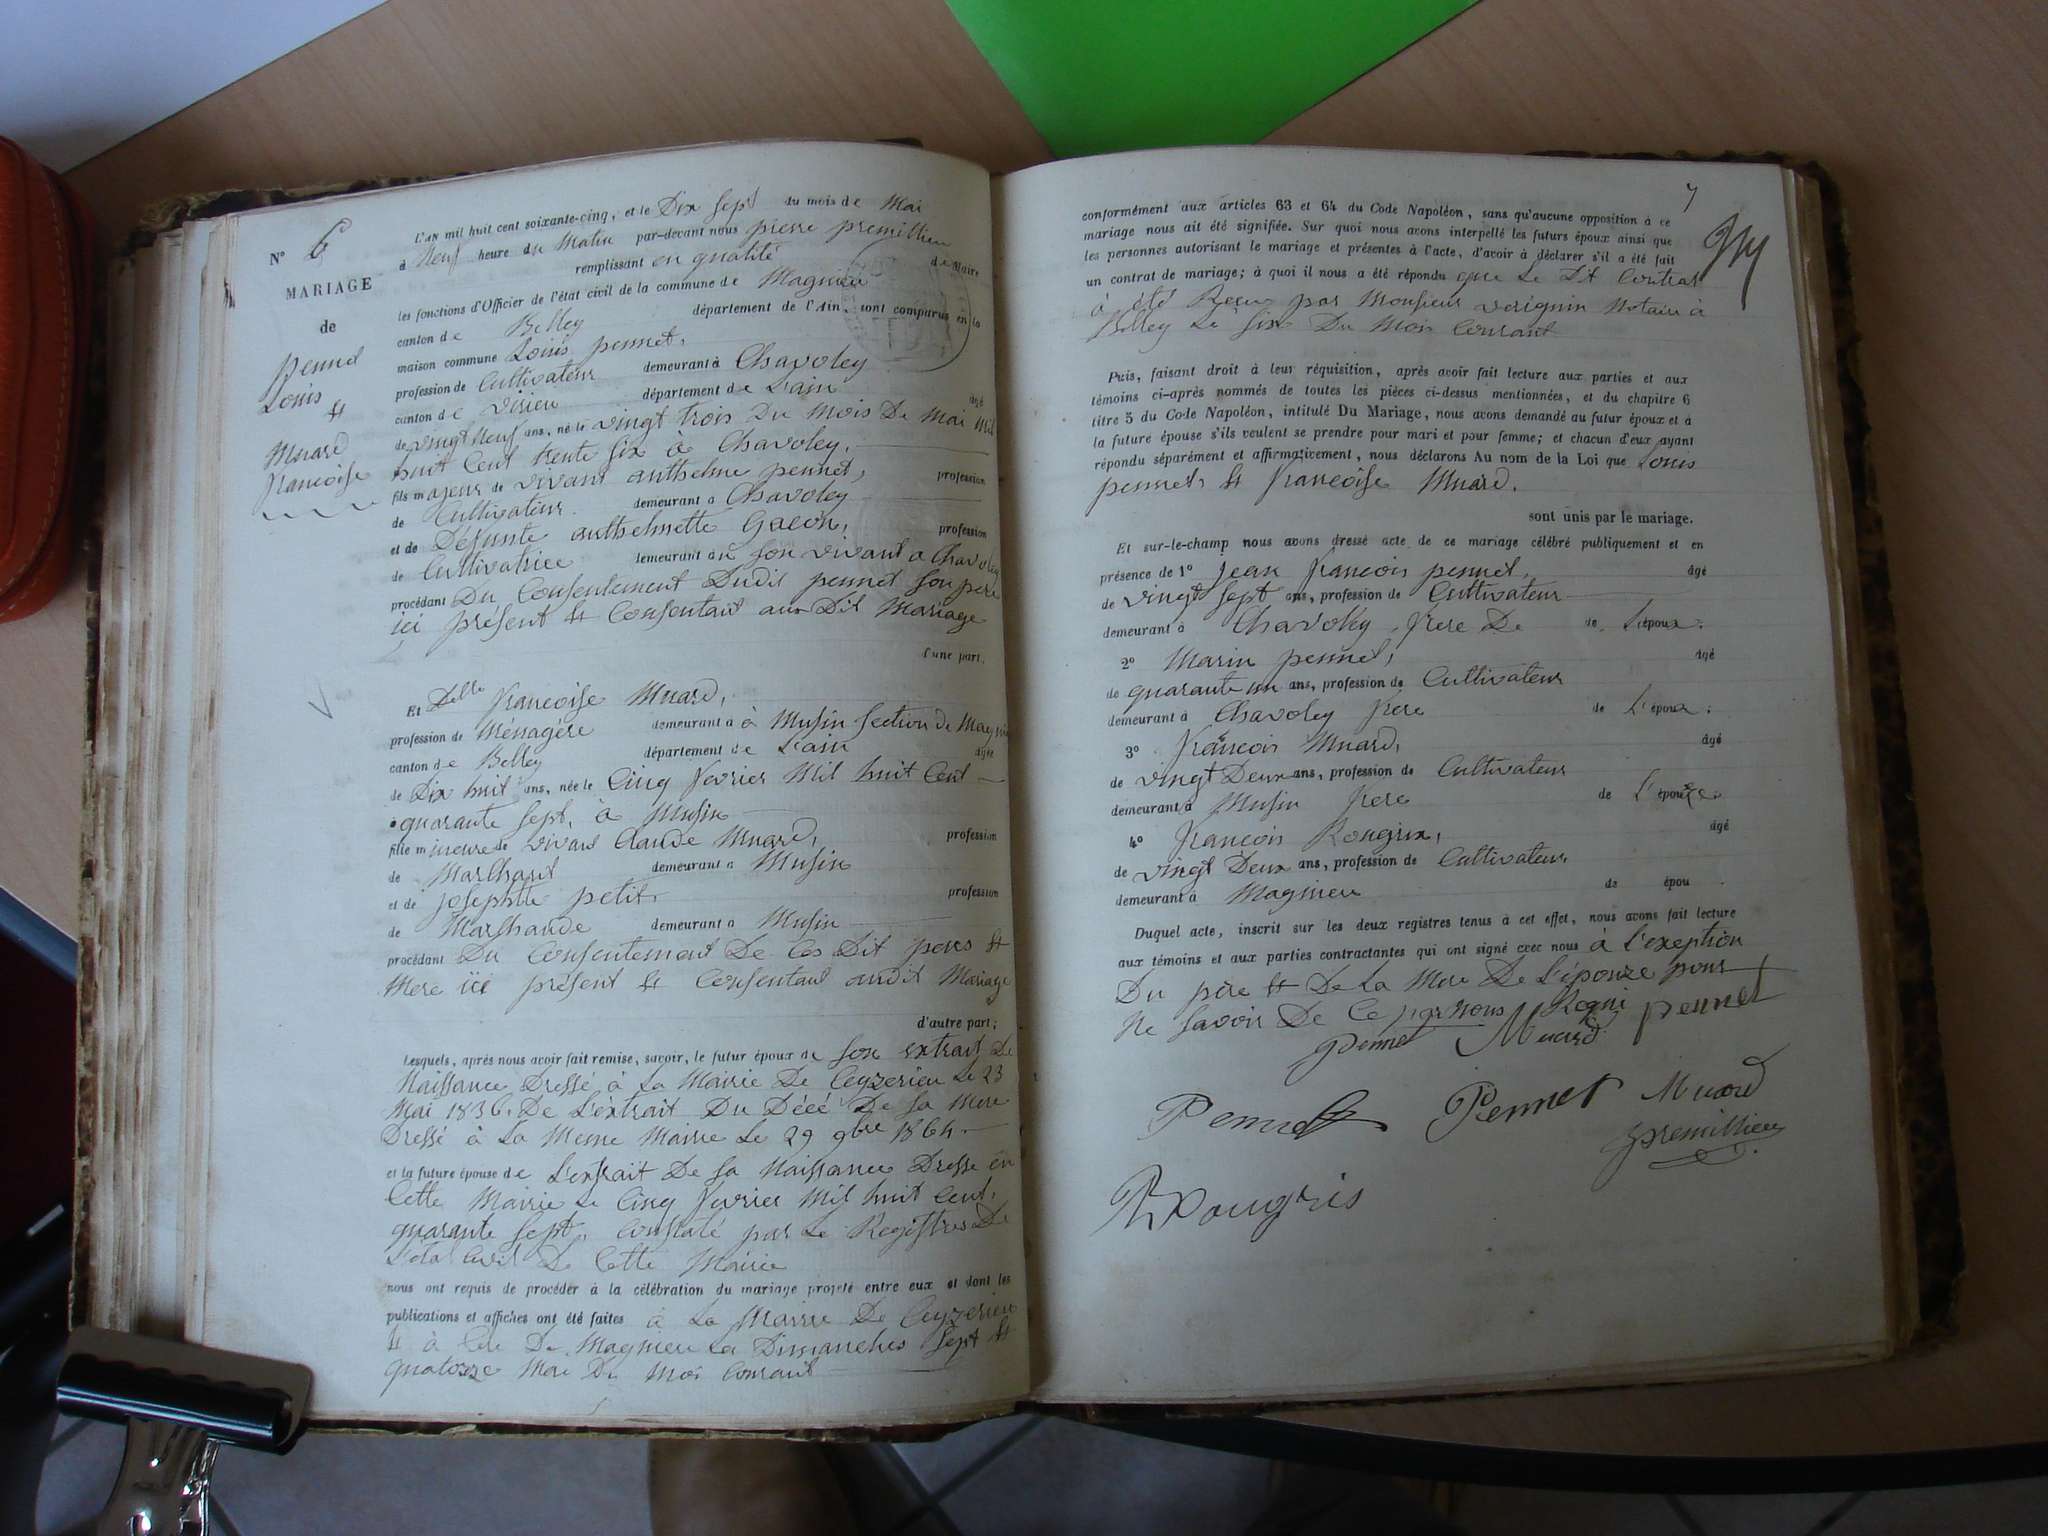 N° 6
MARIAGE
de
Pennet
Louis
et
Muard
francoise
L'AN mil huit cent soixante-cinq, et le Dix sept du mois de Mai
à Neuf heure du Matin par-devant nous pierre premillieu
remplissant en qualité de Maire
les fonctions d'Officier de l'état civil de la commune de Magnieu
canton de Belley département de l'Ain, sont comparus en la
maison commune Louis pennet,
profession de Cultivateur demeurant à Chavoley
canton de virieu département de L'ain âgé
de vingt Neuf ans, né le vingt trois Du Mois De Mai Mil
huit Cent trente six à Chavoley,
fils majeur de vivant anthelme pennet, profession
de Cultivateur demeurant à Chavoley
et de Défunte anthelmette Gacon, profession
de Cultivatrice demeurant à en son vivant a Chavoley
procédant Du Consentement Dudit pennet son pere
ici présent et Consentant au Dit Mariage
d'une part,
Et Delle francoise Muard,
profession de Ménagére demeurant à à Musin section de Magnieu
canton de Belley département de L'ain âgée
de Dix huit ans, née le Cinq fevrier Mil huit Cent
quarante sept, à Musin
fille mineure de vivant Claude Muard, profession
de Marchant demeurant à Musin
et de josephtte petit profession
de Marchande demeurant à Musin
procédant Du Consentement De Ces Dit peres et
Mere ici présent et Consentant audit Mariage
d'autre part;
Lesquels, après nous avoir fait remise, savoir, le futur époux de son extrait de
Naissance Dressé à La Mairie De Ceyzerieu Le 23
Mai 1836. De L'extrait Du Décé De sa Mere
Dressé à La Meme Mairie Le 29 9bre 1864
et la future épouse de L'extrait De sa Naissance Dresse en
Cette Mairie Le Cinq fevrier Mil huit Cent
quarante sept, Constaté par Le Registres De
L'eta Civil De Cette Mairie
nous ont requis de procéder à la célébration du mariage projeté entre eux et dont les
publications et affiches ont été faites à La Mairie De Ceyzerieu
et à Cele De Magnieu La Dimanches sept et
quatorze Mai Du Moi Courant
7
conformément aux articles 63 et 64 du Code Napoléon, sans qu'aucune opposition à ce
mariage nous ait été signifiée. Sur quoi nous avons interpellé les futurs époux ainsi que
les personnes autorisant le mariage et présentes à l'acte, d'avoir à déclarer s'il a été fait
un contrat de mariage; à quoi il nous a été répondu que Le Dit Contrat
à été Recu par Monsieur verignin Notaire à
Belley Le six Du Mois Courant
Puis, faisant droit à leur réquisition, après avoir fait lecture aux parties et aux
témoins ci-après nommés de toutes les pièces ci-dessus mentionnées, et du chapitre 6
titre 5 du Code Napoléon, intitulé Du Mariage, nous avons demandé au futur époux et à
la future épouse s'ils veulent se prendre pour mari et pour femme; et chacun d'eux ayant
répondu séparément et affirmativement, nous déclarons Au nom de la Loi que Louis
pennet et francoise Muard,
sont unis par le mariage.
Et sur-le-champ nous avons dressé acte de ce mariage célébré publiquement et en
présence de 1° jean francois pennet, âgé
de vingt sept ans, profession de Cultivateur
demeurant à Chavoley, frere De de L'époux.
2° Marin pennet, âgé
de quarante un ans, profession de Cultivateur
demeurant à Chavoley frere de L'époux.
3° francois Muard, âgé
de vingt Deux ans, profession de Cultivateur
demeurant à Musin frere de L'épouze.
4° francois Rougrix, âgé
de vingt Deux ans, profession de Cultivateur
demeurant à Magnieu de épou
Duquel acte, inscrit sur les deux registres tenus à cet effet, nous avons fait lecture
aux témoins et aux parties contractantes qui ont signé avec nous à l'exeption
Du père et De La Mere De L'épouze pour
Ne savoir De Ce par nous Requi pennet
pennet Muard
Pennet Pennet Muard
premillieu
Rougris